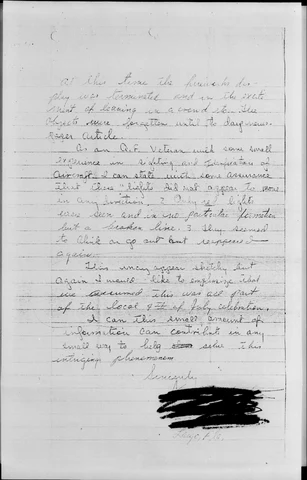 At this time the fireworks dis-
play was terminated and in the excite
ment of leaving in a crowd the
objects were forgotten until the days news-
paper article.
As an A.F. Veteran with some small
experience in sighting and of
aircraft I can state with some assurance
that these "lights did not appear to move
in any direction". 2 lights
were seen and in no particular formation
but a broken line. 3 They seemed
to blink or go out and reappeared
again.
This may appear sketchy but
again I would like to emphasize that
we assumed this was all part
of the local 4th of July celebration.
If can this small amount of
information can contribute in any
small way to help solve this
intriguing phenomenon
Sincerely